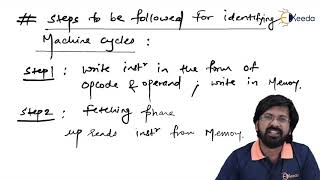 # Steps to be followed for identifying
Machine cycles :
Step1 : write instr in the form of
opcode & operand ; write in Memory.
Step2 : Fetching phase
up reads instr from Memory.
Ekeeda